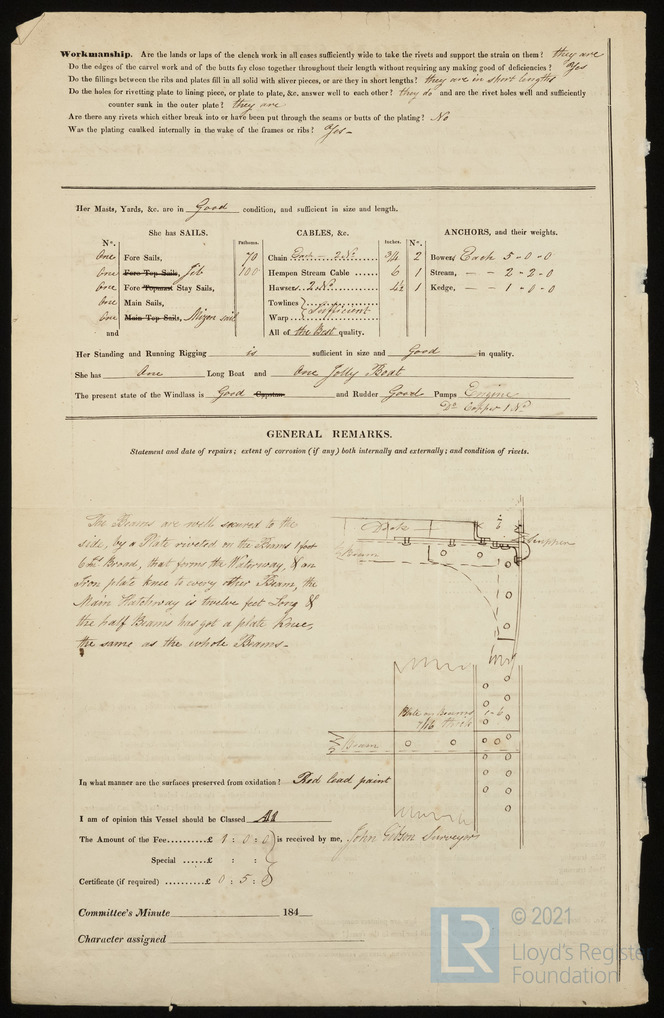 Workmanship. Are the lands or laps of the clench work in all cases sufficiently wide to take the rivets and support the strain on them? they are
Do the edges of the carvel work and of the butts fay close together throughout their length without requiring any making good of deficiencies? Yes
Do the fillings between the ribs and plates fill in solid with sliver pieces, or are they in short lengths? they are in short lengths
Do the holes for rivetting plate to lining piece, or plate to plate, &c. answer well to each other? they do and are the rivet holes well and sufficiently
counter sunk in the outer plate? they are
Are there any rivets which either break into or have been put through the seams or butts of the plating? No
Was the plating caulked internally in the wake of the frames or ribs? Yes-
Her Masts, Yards, &c. are in Good condition, and sufficient in size and length.
She has SAILS. CABLES, &c. ANCHORS, and their weights.
No. Fathoms. Inches. No.
One Fore Sails, 70 Chain Each - 2 No 3/4 2 Bower Each 5-0-0
One Fore Top Sails, Jib 100 Hempen Stream Cable ...... 6 1 Stream, - - 2-2-0
One Fore Topmast Stay Sails, Hawser 2 No 4½ 1 Kedge, - - 1-0-0
One Main Sails, Towlines
One Main Top Sails, Mizen sail Warp Sufficient
and All of the Best quality.
Her Standing and Running Rigging is sufficient in size and Good in quality.
She has One Long Boat and One Jolly Boat
The present state of the Windlass is Good Capstan and Rudder Good Pumps Engine
Do Copper 1 No
GENERAL REMARKS.
Statement and date of repairs; extent of corrosion (if any) both internally and externally; and condition of rivets.
The Beams are well secured to the
side, by a Plate riveted on the Beams 1 foot
6 In Broad, that forms the Waterway, & an
Iron plate knee to every other Beam, the
Main Hatchway is twelve feet Long &
the half Beams has got a plate knee,
the same as the whole Beams-
Deck
Beam
Plate on Beams 1-6
7/16 thick
Beam
In what manner are the surfaces preserved from oxidation? Red lead paint
I am of opinion this Vessel should be Classed A1
The Amount of the Fee..........£ 1 : 0 : 0 is received by me, John Gibson Surveyor
Special ......£ : :
Certificate (if required) ..........£ 0 : 5 : 0
Committee's Minute 184
Character assigned
LR © 2021
Lloyd's Register
Foundation